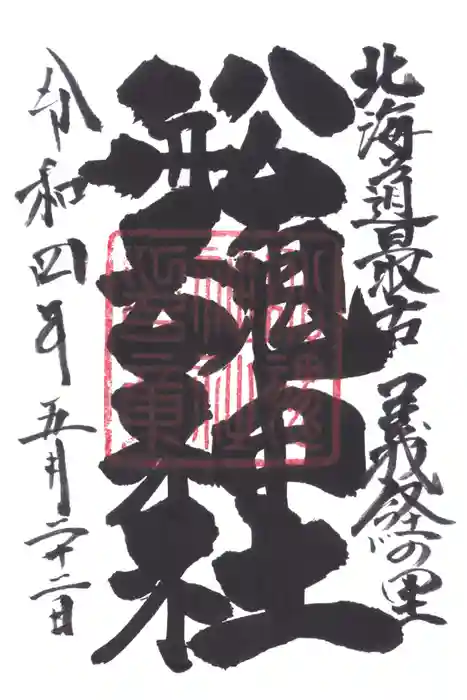 北海道最古 義経の里
船魂神社
令和四年五月二十二日